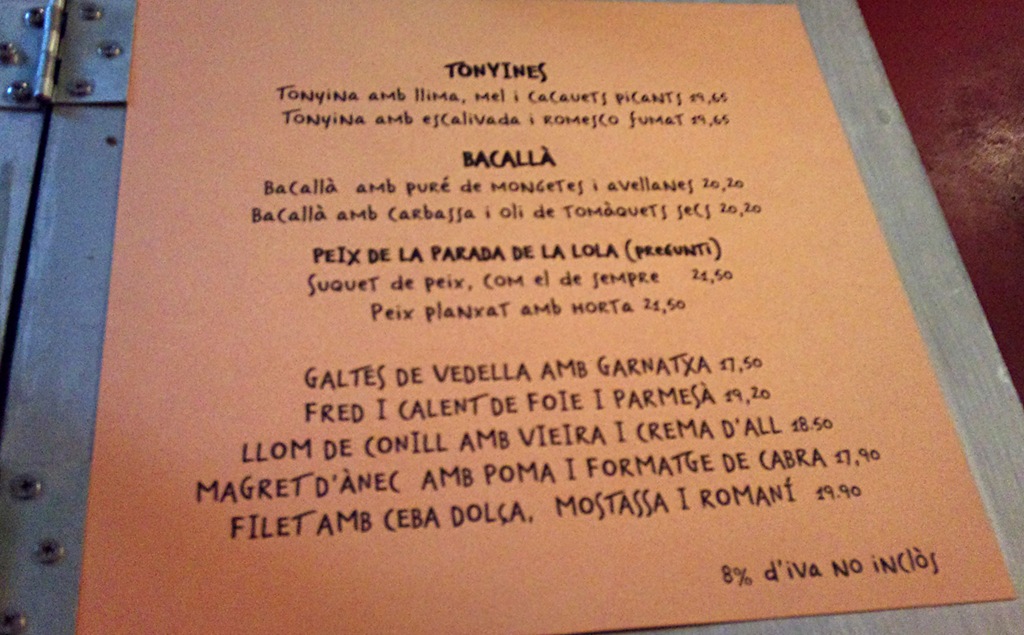 TONYINES
Tonyina amb llima, mel i cacauets picants 19,65
Tonyina amb escalivada i romesco fumat 19,65
BACALLÀ
Bacallà amb puré de mongetes i avellanes 20,20
Bacallà amb carbassa i oli de tomàquets secs 20,20
PEIX DE LA PARADA DE LA LOLA (pregunti)
Suquet de peix, com el de sempre 21,50
Peix planxat amb horta 21,50
GALTES DE VEDELLA AMB GARNATXA 17,50
FRED I CALENT DE FOIE I PARMESÀ 19,20
LLOM DE CONILL AMB VIEIRA I CREMA D'ALL 18.50
MAGRET D'ÀNEC AMB POMA I FORMATGE DE CABRA 17,90
FILET AMB CEBA DOLÇA, MOSTASSA I ROMANÍ 19.90
8% d'iva no inclòs